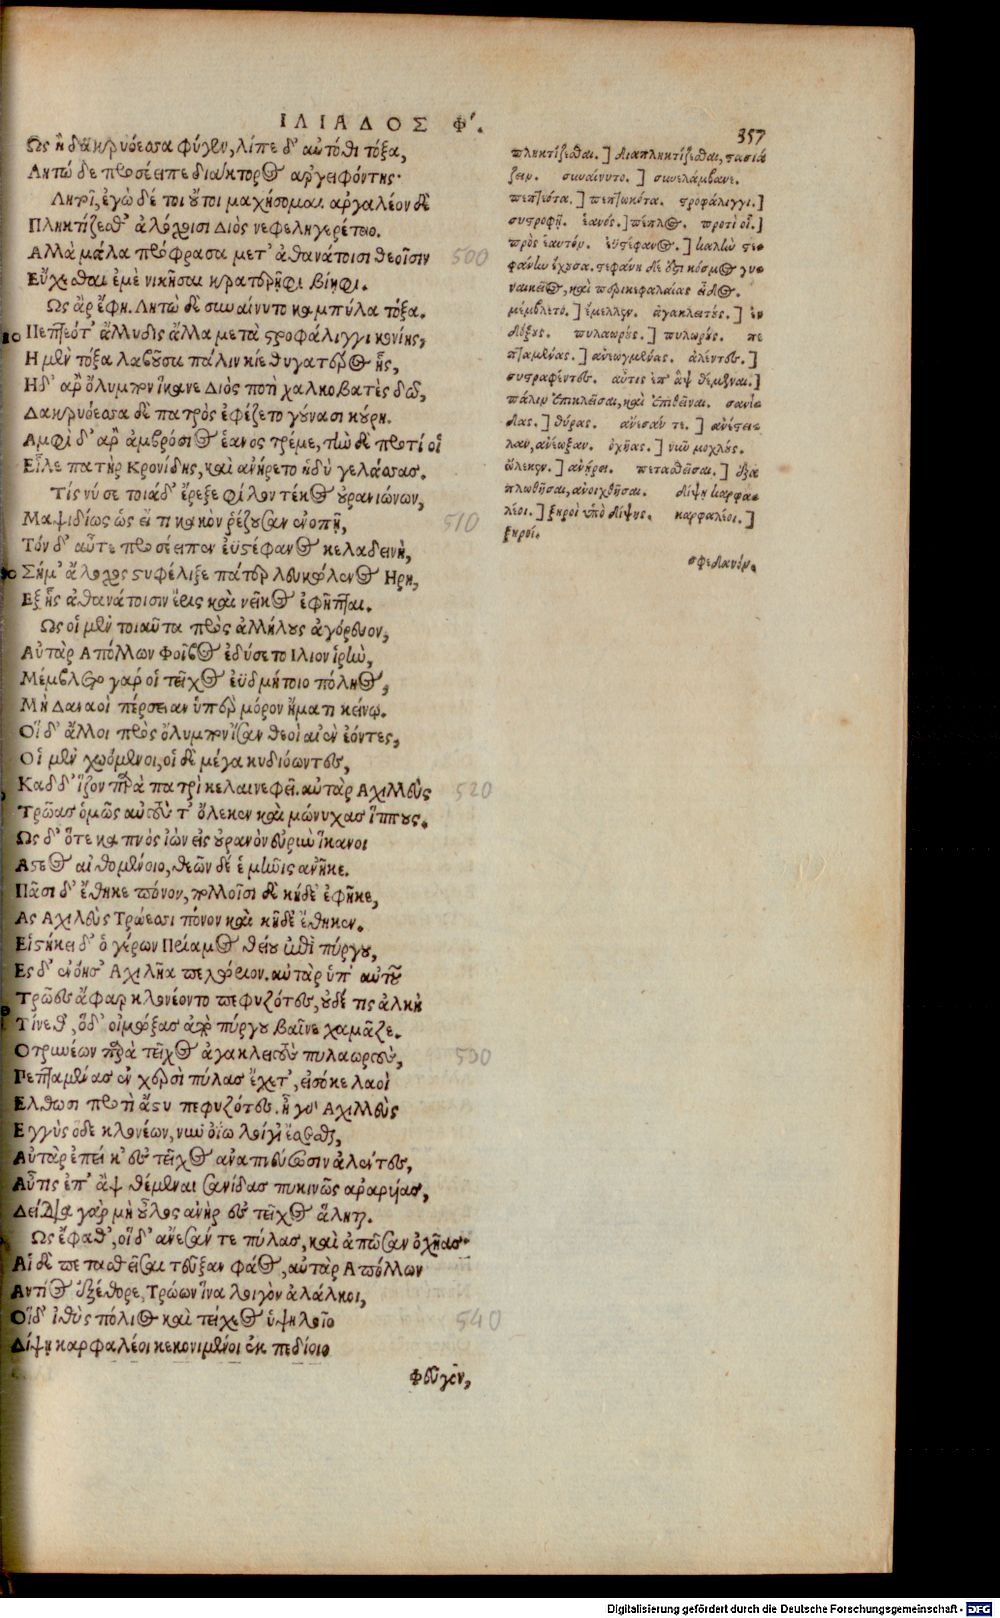 ΙΛΙΑΔΟΣ Φ'.
357
Ως ἣ δακρυόεσσα φύγεν, λίπε δ' αὐτόθι τόξα,
Λητώ δε προσέειπε διάκτορος αργειφόντης·
Λητοῖ, ἐγὼ δέ τοι οὔτοι μαχήσομαι. αργαλέον δὲ
Πληκτίζεσθ' ἀλόχοισι Διὸς νεφεληγερέταο.
Αλλὰ μάλα πρόφρασσα μετ' ἀθανάτοισι θεοῖσιν 500
Εὔχεσθαι ἐμὲ νικῆσαι κρατερῆφι βίηφι.
Ως ἂρ ἔφη. Λητὼ δὲ συναίνυτο καμπύλα τόξα.
Πεπτεότ' ἄλλυδις ἄλλα μετὰ στροφάλιγγι κονίης,
Η μὲν τόξα λαβοῦσα πάλιν κίε θυγατέρος ἧς,
Ηδ' αρ ὄλυμπον ἵκανε Διὸς ποτὶ χαλκοβατὲς δῶ,
Δακρυόεσσα δὲ πατρὸς ἐφέζετο γούνασι κούρη.
Αμφὶ δ' αρ ἀμβρόσιος ἑανος τρέμε, τὴν δὲ προτί οἷ
Εἷλε πατὴρ Κρονίδης, καὶ ανήρετο ἡδὺ γελάσσας.
Τίς νύ σε τοιάδ' ἔρεξε φίλον τέκος οὐρανιώνων,
Μαψιδίως ὡς εἴ τι κακὸν ῥέζουσαν ἐνοπῇ, 510
Τόν δ' αὖτε προσέειπεν ἐϋστέφανος κελαδεινὴ,
Σήμ' ἄλοχος στυφέλιξε πάτερ λευκώλενος Ηρη,
Εξ ἧς ἀθανάτοισιν ἔρις καὶ νεῖκος ἐφῆπται.
Ως οἱ μὲν τοιαῦτα πρὸς ἀλλήλους ἀγόρευον,
Αὐτὰρ Απόλλων Φοῖβος ἐδύσετο Ιλιον ἱρὴν,
Μέμβλετο γαρ οἱ τεῖχος ἐϋδμήτοιο πόληος,
Μὴ Δαναοὶ πέρσειαν ὑπὲρ μόρον ἤματι κείνῳ.
Οἱ δ' ἄλλοι πρὸς ὄλυμπον ἴσαν θεοὶ αἰὲν ἐόντες,
Οἱ μὲν χωόμενοι, οἱ δὲ μέγα κυδιόωντες,
Καδ δ' ἷζον παρὰ πατρὶ κελαινεφεῖ. αὐτὰρ Αχιλλεὺς 520
Τρῶας ὁμῶς αὐτούς τ' ὄλεκεν καὶ μώνυχας ἵππους.
Ως δ' ὅτε καπνὸς ἰὼν εἰς οὐρανὸν εὐρὺν ἵκανοι
Αστεος αἰθομένοιο, θεῶν δέ ἑ μῆνις ανῆκε.
Πᾶσι δ' ἔθηκε πόνον, πολλοῖσι δὲ κήδε' ἐφῆκε,
Ας Αχιλεὺς Τρώεσσι πόνον καὶ κήδε' ἔθηκεν.
Εἱστήκει δ' ὁ γέρων Πρίαμος θείου ἐπὶ πύργου,
Ες δ' ἐνόησ' Αχιλῆα πελώριον. αὐτὰρ ὑπ' αὐτοῦ
Τρῶες ἄφαρ κλονέοντο πεφυζότες, οὐδέ τις ἀλκὴ
Γίνεθ', ὅδ' οἰμώξας ἀπὸ πύργου βαῖνε χαμᾶζε.
Οτρυνέων παρὰ τεῖχος ἀγακλειτοὺς πυλαωροὺς, 530
Πεπταμένας ἐν χερσὶ πύλας ἔχετ', εἰσόκε λαοὶ
Ελθωσι προτὶ ἄστυ πεφυζότες. ἦ γὰρ Αχιλλεὺς
Εγγὺς ὅδε κλονέων, νῦν οἴω λοίγι' ἔσεσθαι,
Αὐτὰρ ἐπεί κ' ἐς τεῖχος ἀναπνεύσωσιν ἀλέντες,
Αὖτις ἐπ' ἂψ θέμεναι σανίδας πυκινῶς αραρυίας,
Δείδια γὰρ μὴ οὖλος ἀνὴρ ἐς τεῖχος ἅληται.
Ως ἔφαθ', οἵ δ' ἄνεσάν τε πύλας, καὶ ἀπῶσαν ὀχῆας·
Αἱ δὲ πετασθεῖσαι τεῦξαν φάος, αὐτὰρ Απόλλων
Αντίος ἐξέθορε, Τρώων ἵνα λοιγὸν ἀλάλκοι,
Οἱ δ' ἰθὺς πόλιος καὶ τείχεος ὑψηλοῖο 540
Δίψῃ καρφαλέοι κεκονιμένοι ἐκ πεδίοιο
Φεῦγον,
πληκτίζεσθαι.] διαπληκτίζεσθαι, στασιά
ζειν. συναίνυτο.] συνελάμβανε.
πεπτεότα.] πεπτωκότα. στροφάλιγγι.]
συστροφῇ. ἑανός.] πέπλος. προτὶ οἷ.]
πρὸς ἑαυτόν. ἐϋστέφανος.] καλὴν στε-
φάνην ἔχουσα. στεφάνη δέ ἐστι κόσμος γυ-
ναικεῖος, καὶ περικεφαλαίας εἶδος.
μέμβλετο.] ἔμελλεν. ἀγακλειτούς.] ἐν
δόξους. πυλαωρούς.] πυλωρούς. πε
πταμένας.] ανεωγμένας. ἀλέντες.]
συστραφέντες. αὖτις ἐπ' ἂψ θέμεναι.]
πάλιν ἐπικλεῖσαι, καὶ ἐπιθεῖναι. σανί-
δας.] θύρας. ἄνεσαν τε.] ἀνέπει-
λαν, ἀνέωξαν. ὀχῆας.] νῦν μοχλούς.
ὤλεκεν.] ἀνῄρει. πετασθεῖσαι.] ἐξα
πλωθεῖσαι, ἀνοιχθεῖσαι. δίψῃ καρφα-
λέοι.] ξηροὶ ὑπὸ δίψης. καρφαλέοι.]
ξηροί.
σφεδανόν.
Digitalisierung gefördert durch die Deutsche Forschungsgemeinschaft - DFG